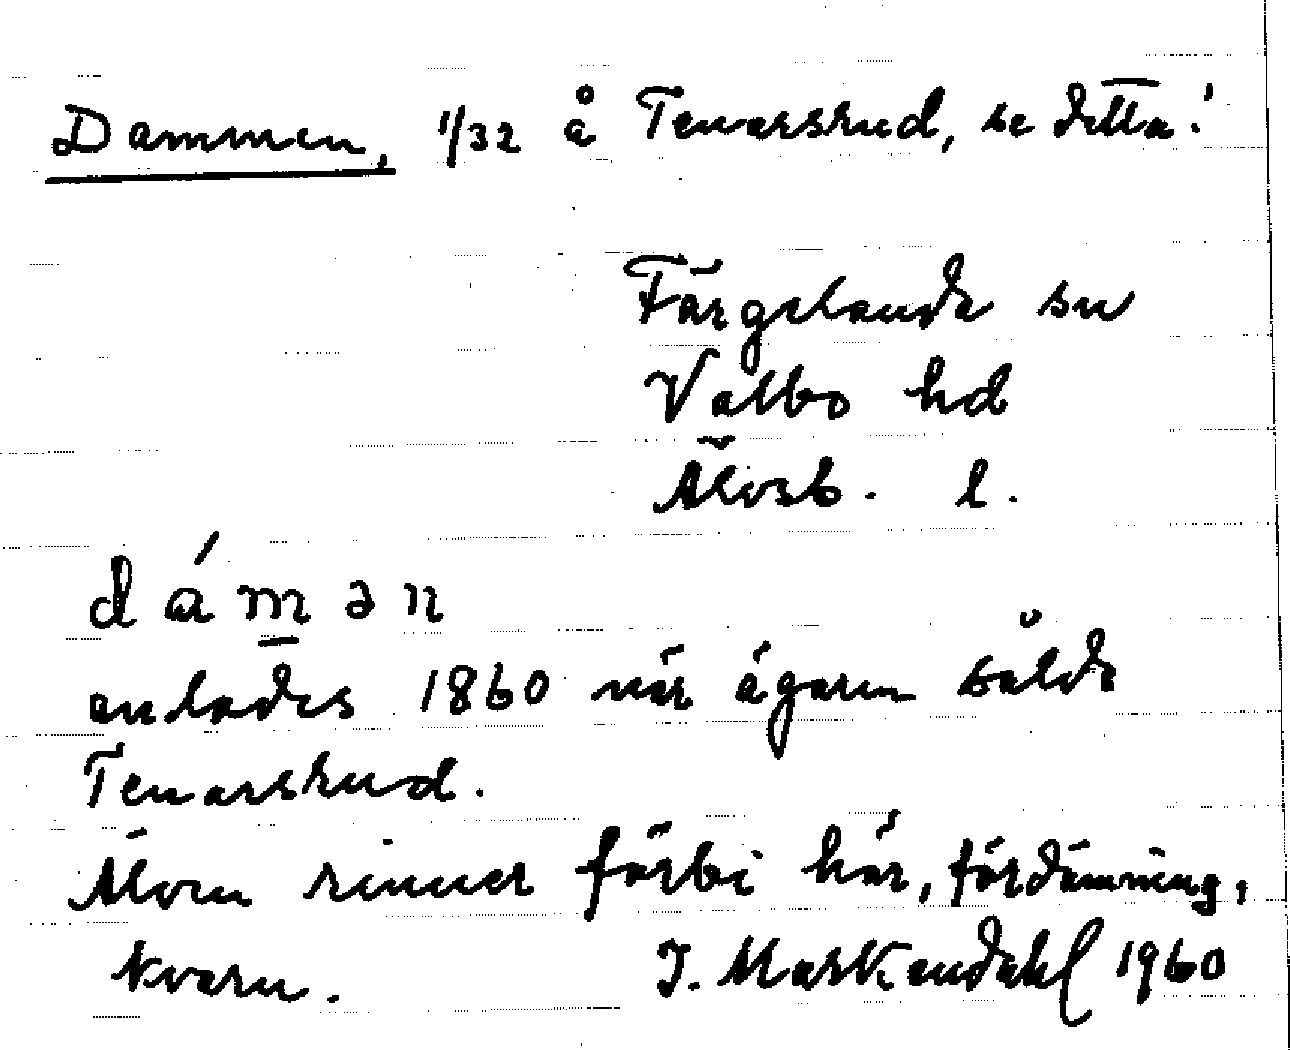 Dammen, 1/32 å Tenarsrud, se detta!
Färgelanda sn
Valbo hd
Älvsb. l.
dámən
anlades 1860 när ägaren sålde
Tenarsrud.
Älven rinner förbi här, fördämning,
kvarn. J. Markendahl 1960